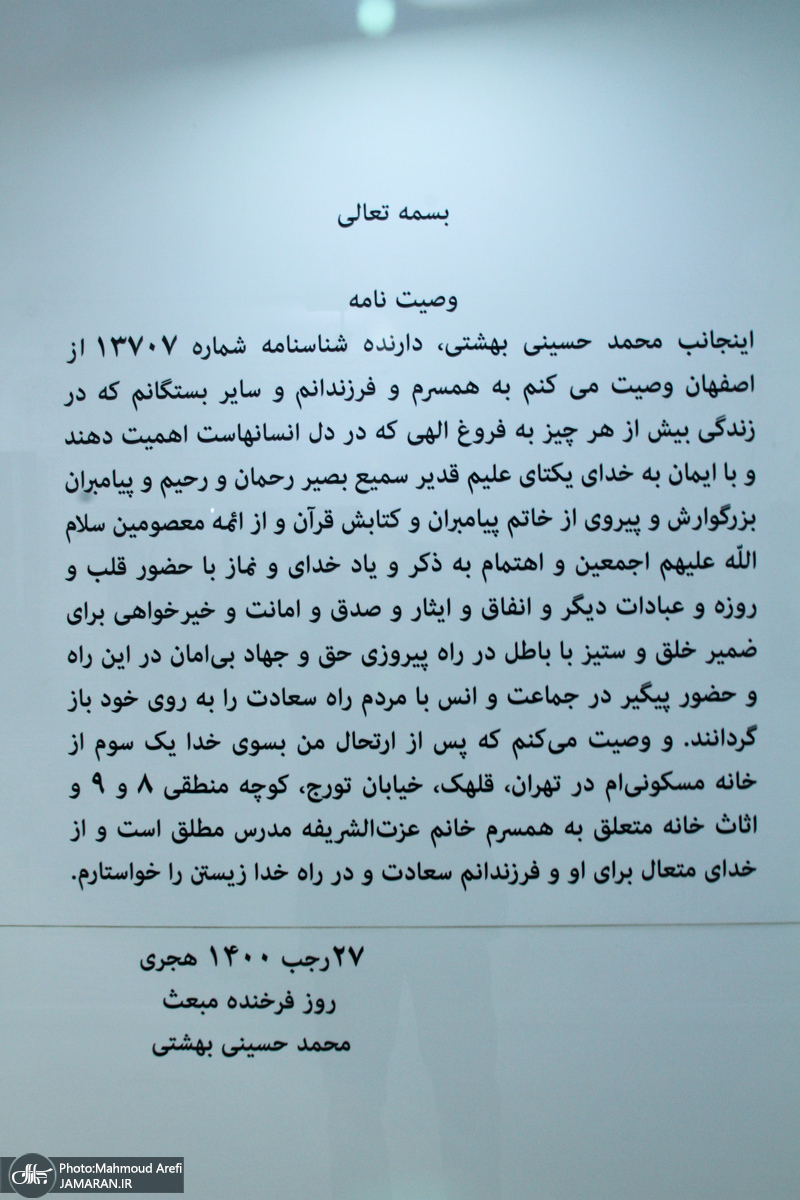 بسمه تعالی
وصیت نامه
اینجانب محمد حسینی بهشتی، دارنده شناسنامه شماره ۱۳۷۰۷ از
اصفهان وصیت می کنم به همسرم و فرزندانم و سایر بستگانم که در
زندگی بیش از هر چیز به فروغ الهی که در دل انسانهاست اهمیت دهند
و با ایمان به خدای یکتای علیم قدیر سمیع بصیر رحمان و رحیم و پیامبران
بزرگوارش و پیروی از خاتم پیامبران و کتابش قرآن و از ائمه معصومین سلام
اللّه علیهم اجمعین و اهتمام به ذکر و یاد خدای و نماز با حضور قلب و
روزه و عبادات دیگر و انفاق و ایثار و صدق و امانت و خیرخواهی برای
ضمیر خلق و ستیز با باطل در راه پیروزی حق و جهاد بی‌امان در این راه
و حضور پیگیر در جماعت و انس با مردم راه سعادت را به روی خود باز
گردانند. و وصیت می‌کنم که پس از ارتحال من بسوی خدا یک سوم از
خانه مسکونی‌ام در تهران، قلهک، خیابان تورج، کوچه منطقی ۸ و ۹ و
اثاث خانه متعلق به همسرم خانم عزت‌الشریفه مدرس مطلق است و از
خدای متعال برای او و فرزندانم سعادت و در راه خدا زیستن را خواستارم.
۲۷رجب ۱۴۰۰ هجری
روز فرخنده مبعث
محمد حسینی بهشتی
جماران
Photo:Mahmoud Arefi
JAMARAN.IR